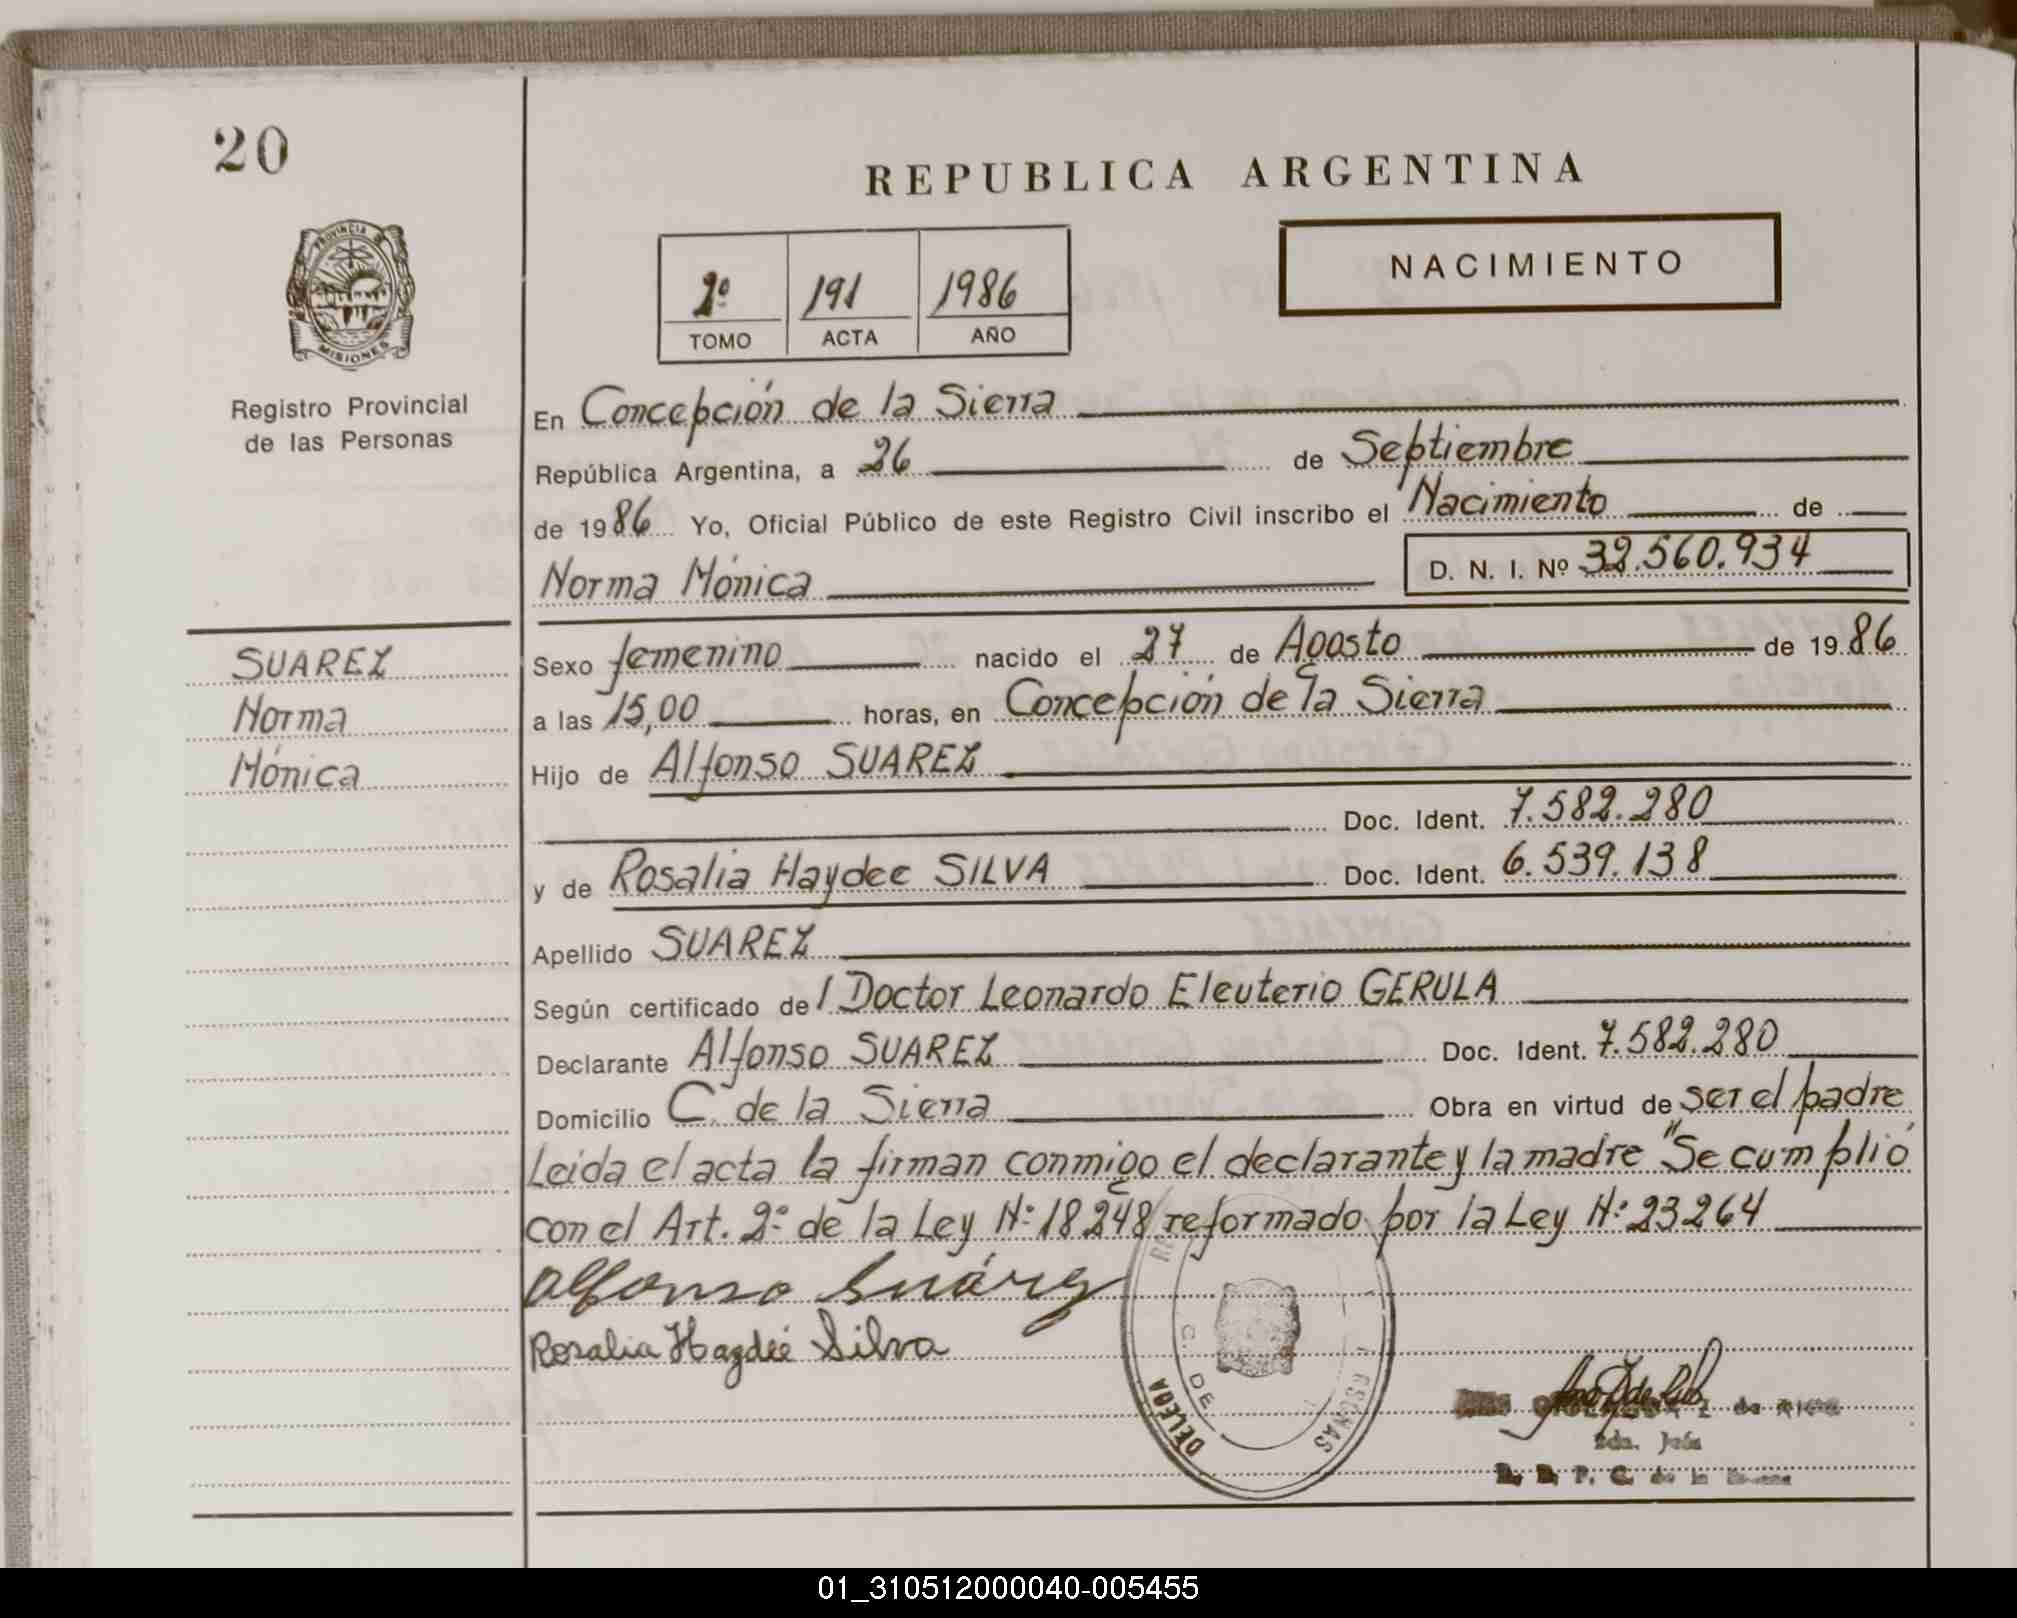 20
REPUBLICA ARGENTINA
PROVINCIA DE
MISIONES
Registro Provincial
de las Personas
2º 191 1986
TOMO ACTA AÑO
NACIMIENTO
En Concepción de la Sierra
República Argentina, a 26 de Septiembre
de 1986 Yo, Oficial Público de este Registro Civil inscribo el Nacimiento de
Norma Mónica D. N. I. Nº 32.560.934
SUAREZ
Norma
Mónica
Sexo femenino nacido el 27 de Agosto de 1986
a las 15,00 horas, en Concepción de la Sierra
Hijo de Alfonso SUAREZ
Doc. Ident. 7.582.280
y de Rosalia Haydee SILVA Doc. Ident. 6.539.138
Apellido SUAREZ
Según certificado del Doctor Leonardo Eleuterio GERULA
Declarante Alfonso SUAREZ Doc. Ident. 7.582.280
Domicilio C. de la Sierra Obra en virtud de ser el padre
Leida el acta la firman conmigo el declarante y la madre "Se cumplió
con el Art. 2º de la Ley Nº 18248 reformado por la Ley Nº 23264
Alfonso Suárez
Rosalia Haydeé Silva
DELEGA
C. DE
RSONAS
de RICO
Jefa
R. P. C. de la
01_310512000040-005455